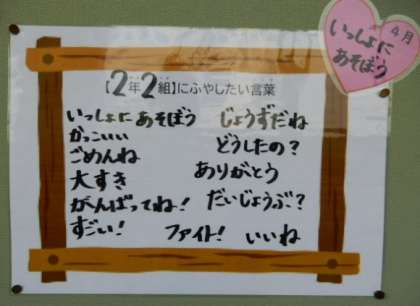 【2年2組】にふやしたい言葉
いっしょにあそぼう
かっこいい
ごめんね
大すき
がんばってね!
すごい!
じょうずだね
どうしたの?
ありがとう
だいじょうぶ?
ファイト!
いいね
4月
いっしょに
あそぼう